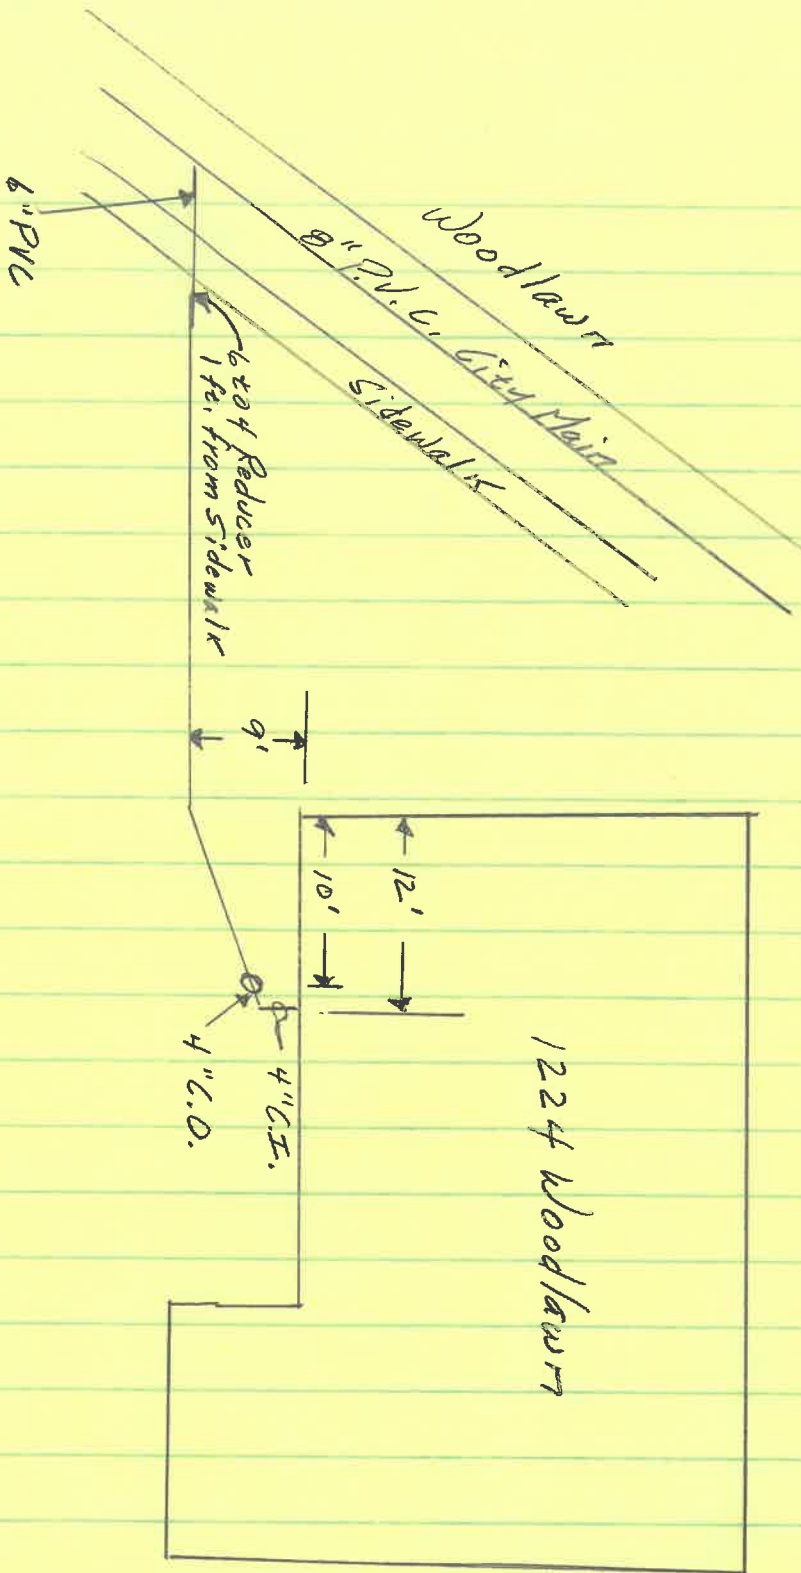 Woodlawn
8" P.V.C. City Main
Sidewalk
6" PVC
6 to 4 Reducer
1 ft. from Sidewalk
9'
12'
10'
4" C.I.
4" C.O.
1224 Woodlawn